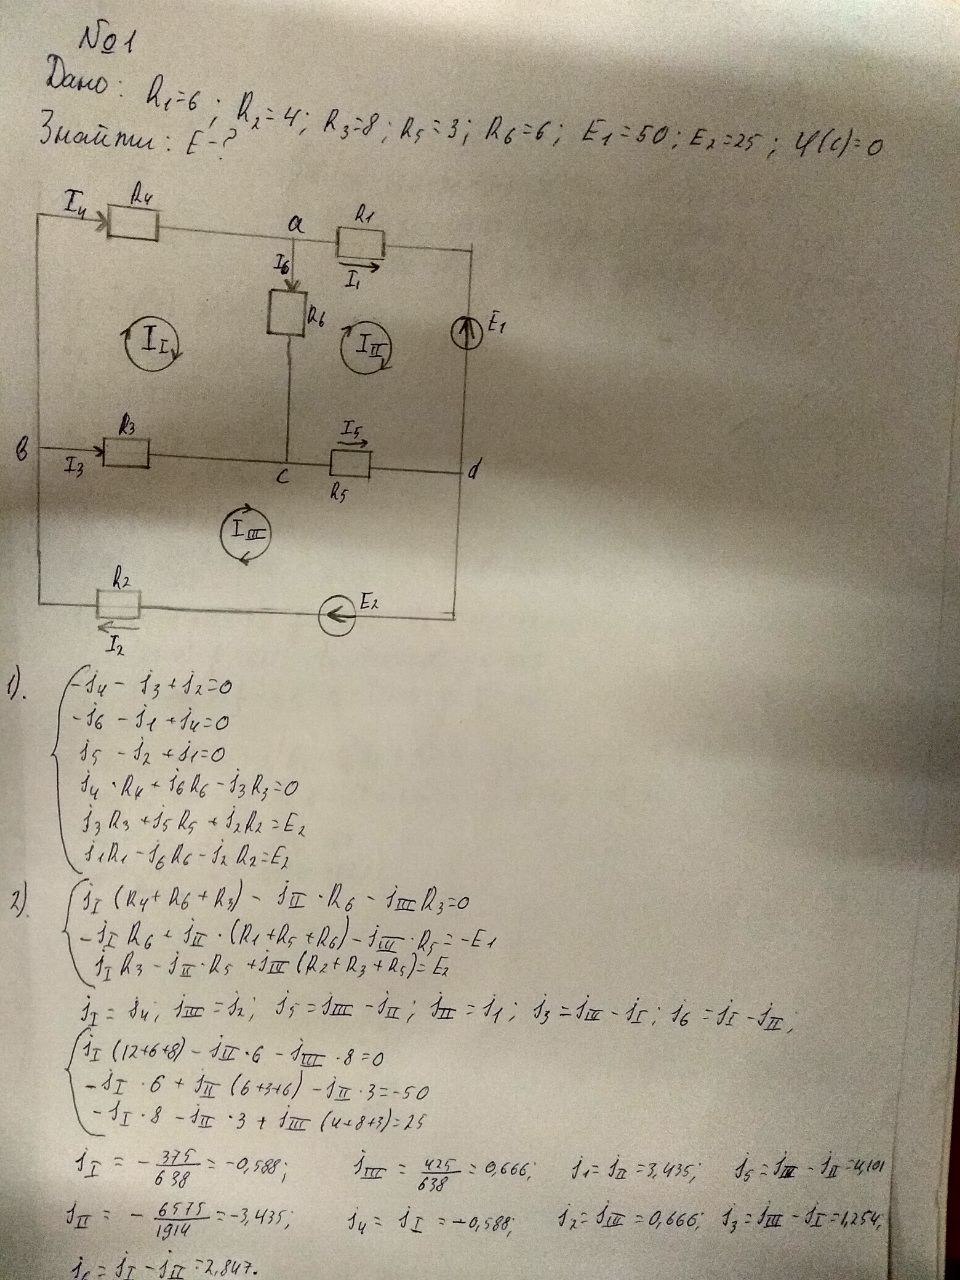 №1
Дано: R1=6; R2=4; R3=8; R5=3; R6=6; E1=50; E2=25; φ(c)=0
Знайти: E-?
I4 R4 a R1
I6 I1
R6 E1
II III
R3 I5
в I3 c R5 d
IIII
R2 E2
I2
1).
-i4 - i3 + i2=0
-i6 - i1 + i4=0
i5 - i2 + i1=0
i4 · R4 + i6R6 - i3R3=0
i3R3 + i5R5 + i2R2=E2
i1R1 - i6R6 - i2R2=E2
2).
iI (R4+R6+R3) - iII · R6 - iIII R3=0
-iI R6 + iII · (R1+R5+R6) - iIII · R5=-E1
iI R3 - iII · R5 + iIII (R2+R3+R5)=E2
iI = i4; iIII = i2; i5 = iIII - iII; iII = i1; i3 = iIII - iI; i6 = iI - iII;
iI (12+6+8) - iII · 6 - iIII · 8=0
-iI · 6 + iII (6+3+6) - iII · 3=-50
-iI · 8 - iII · 3 + iIII (4+8+3)=25
iI = -375/638 = -0,588; iIII = 425/638 = 0,666; i1=iII=3,435; i5=iIII - iII=4,101
iII = -6575/1914 = -3,435; i4 = iI = -0,588; i2=iIII=0,666; i3=iIII - iI=1,254;
i6 = iI - iII =2,847.